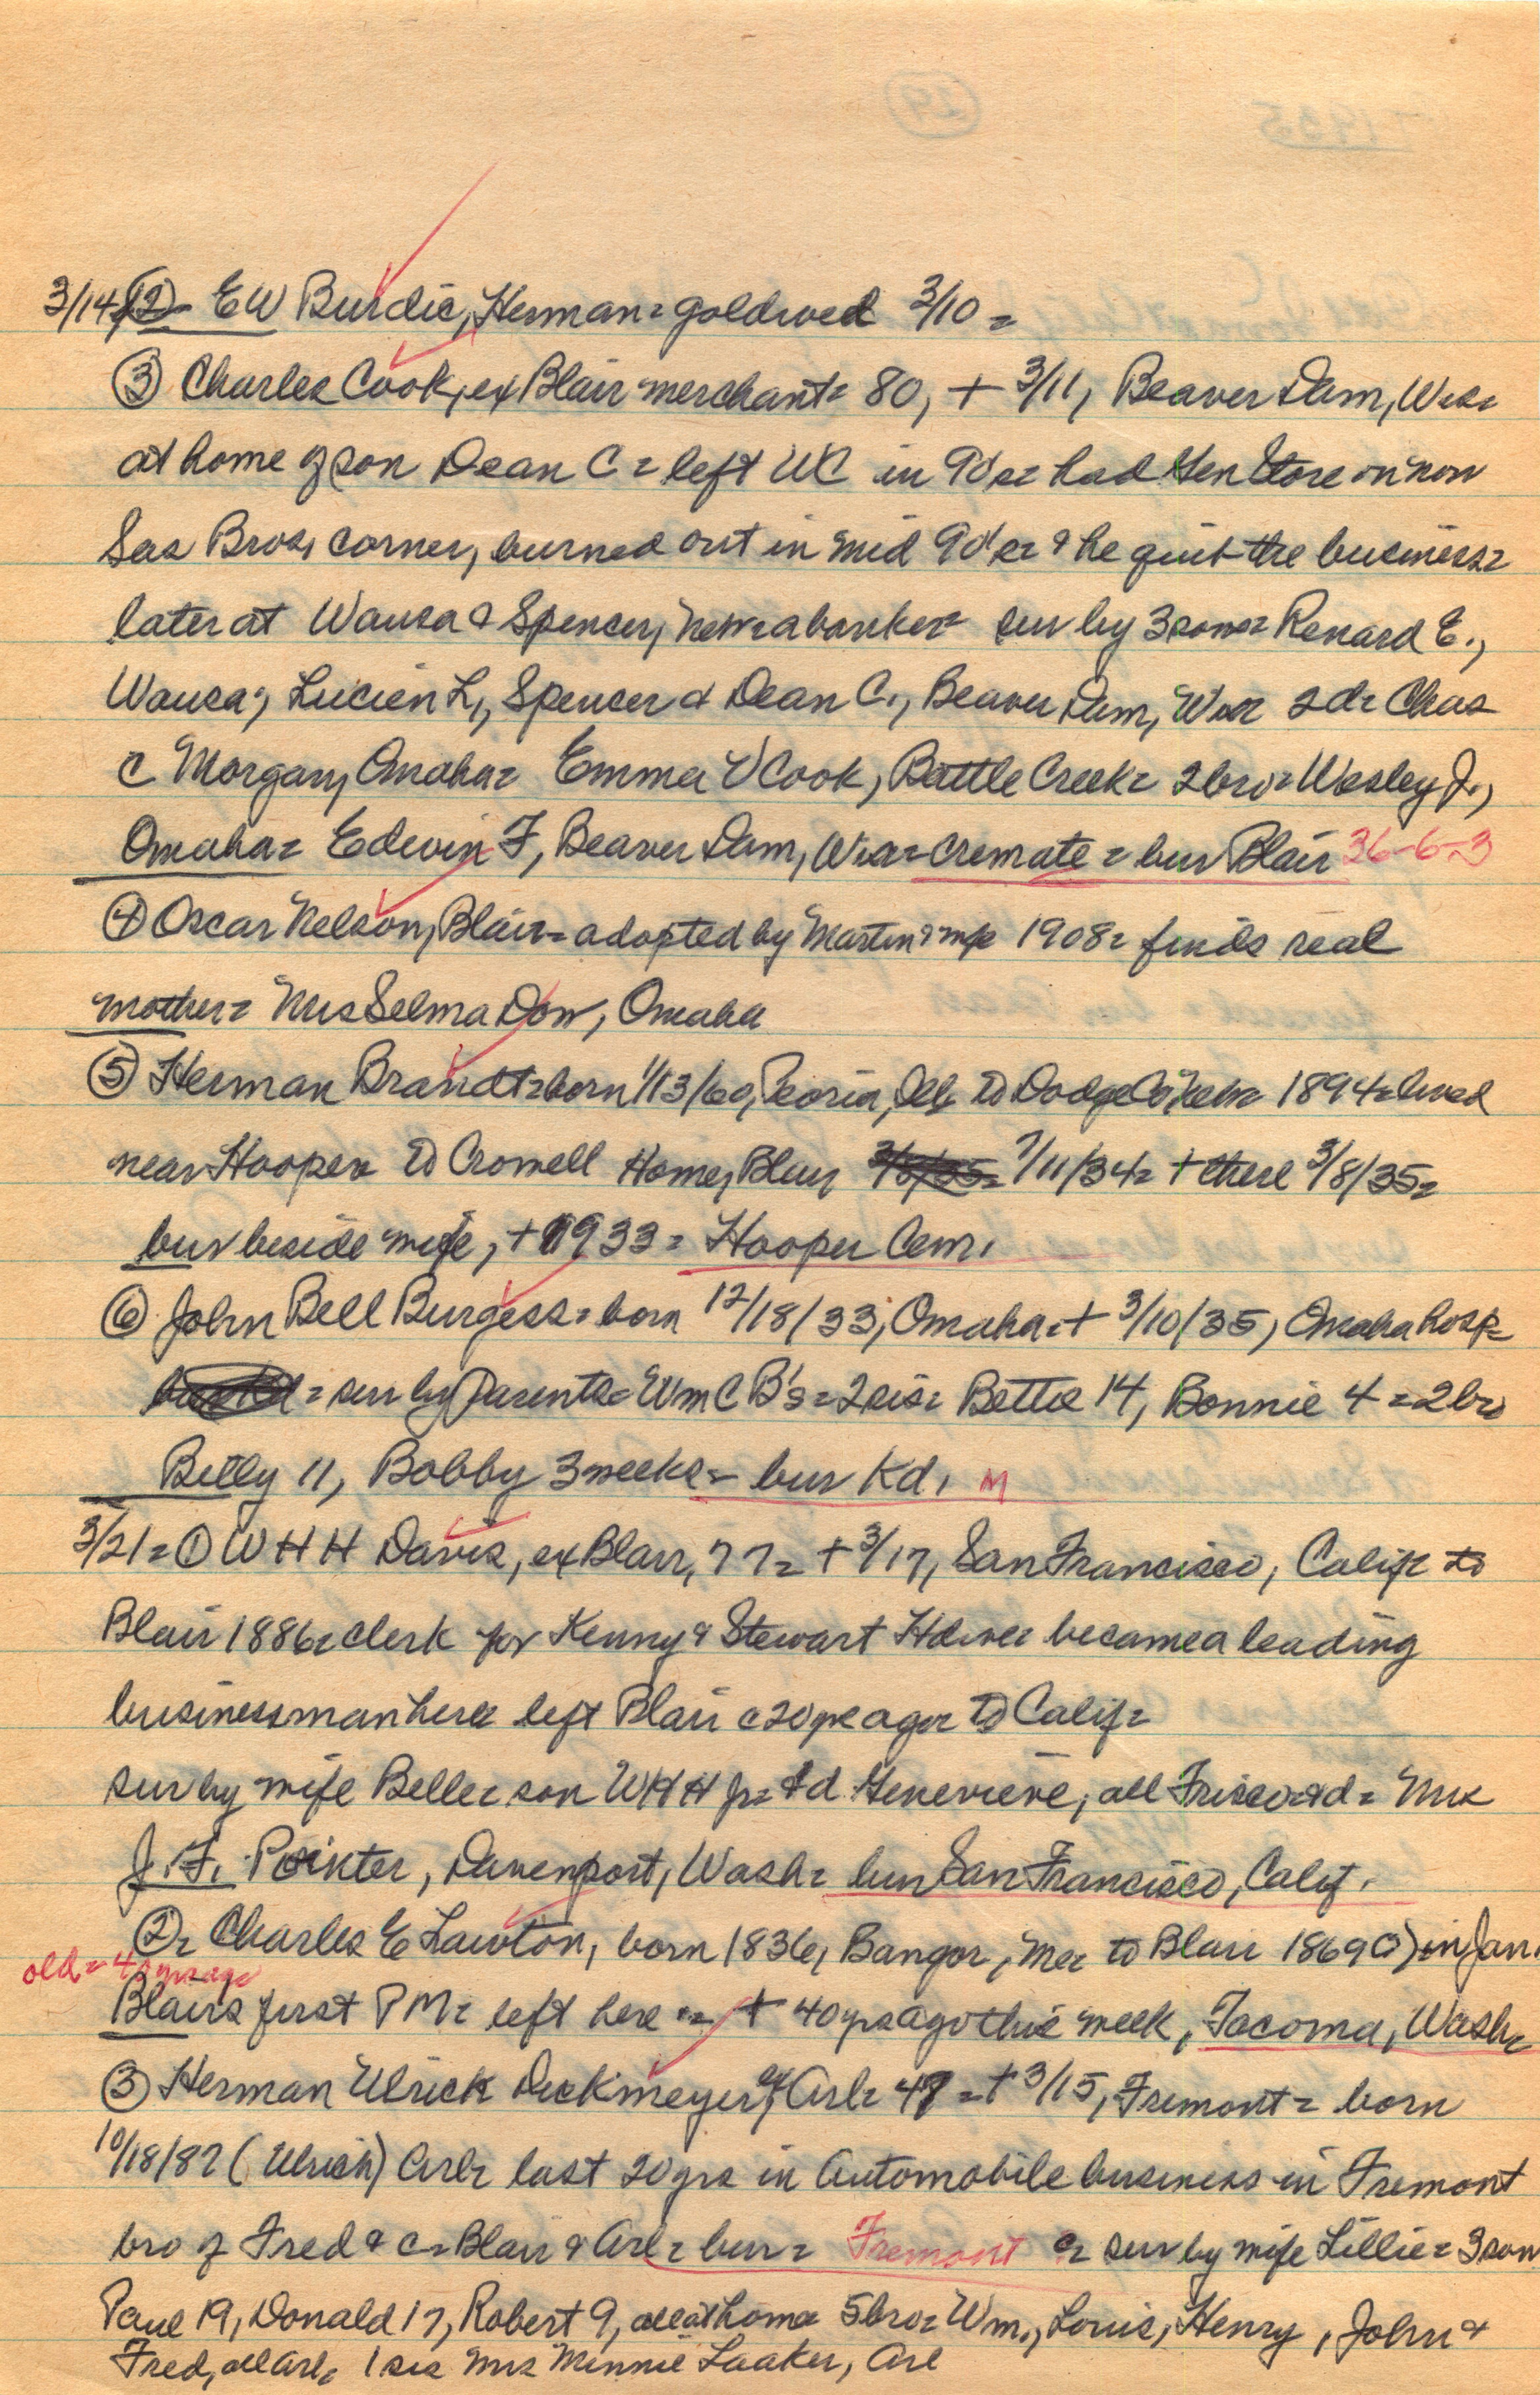 3/14 (2)= EW Burdic, Herman= goldwed 3/10=
(3) Charles Cook, ex Blair merchant= 80, + 3/11, Beaver Dam, Wis=
at home of son Dean C= left WC in 90's= had Gen Store on now
Sas Bros, corner, burned out in mid 90's= & he quit the business=
later at Wausa & Spencer, Neb= a banker= sur by 3 sons= Renard E.,
Wausa, Lucien L, Spencer & Dean C., Beaver Dam, Wis= 2d= Chas
C Morgan, Omaha= Emma V Cook, Battle Creek= 2 bro= Wesley J.,
Omaha= Edwin F, Beaver Dam, Wis= cremate= bur Blair 36-6-3
(4) Oscar Nelson, Blair= adopted by Martin & 1908= finds real
mother= Mrs Selma Dow, Omaha
(5) Herman Brandt= born 1/13/60, Peoria, Ill= to Dodge Co, Neb= 1894= lived
near Hooper= to Crowell Home, Blair 7/11/34= + there 3/8/35=
bur beside wife, + 1933= Hooper Cem.
(6) John Bell Burgess= born 12/18/33, Omaha= + 3/10/35, Omaha hosp=
= sur by Parents= Wm C B's= 2 sis= Bettie 14, Bonnie 4= 2 bro
Billy 11, Bobby 3 weeks= bur Kd, M
3/21= (1) W H H Davis, ex Blair, 77= + 3/17, San Francisco, Calif= to
Blair 1886= clerk for Kenny & Stewart Hdwe= became a leading
businessman here= left Blair c 20 yrs ago= to Calif=
sur by wife Belle= son WHH Jr= & d Genevieve, all Frisco= & d= Mrs
J. F. Pointer, Davenport, Wash= bur San Francisco, Calif.
(2)= Charles E Lawton, born 1836, Bangor, Me= to Blair 1869 in Jan.
old= 40 yrs ago
Blairs first PM= left here = + 40 yrs ago this week, Tacoma, Wash=
(3) Herman Ulrick Dickmeyer, ex Arl= 47= + 3/15, Fremont= born
10/18/87 (Ulrich) Arl= last 20 yrs in Automobile business in Fremont
bro of Fred & c= Blair & Arl= bur= Fremont = sur by wife Lillie= 3 son
Paul 19, Donald 17, Robert 9, all at home= 5 bro= Wm., Louis, Henry, John &
Fred, all Arl= 1 sis Mrs Minnie Laaker, Arl